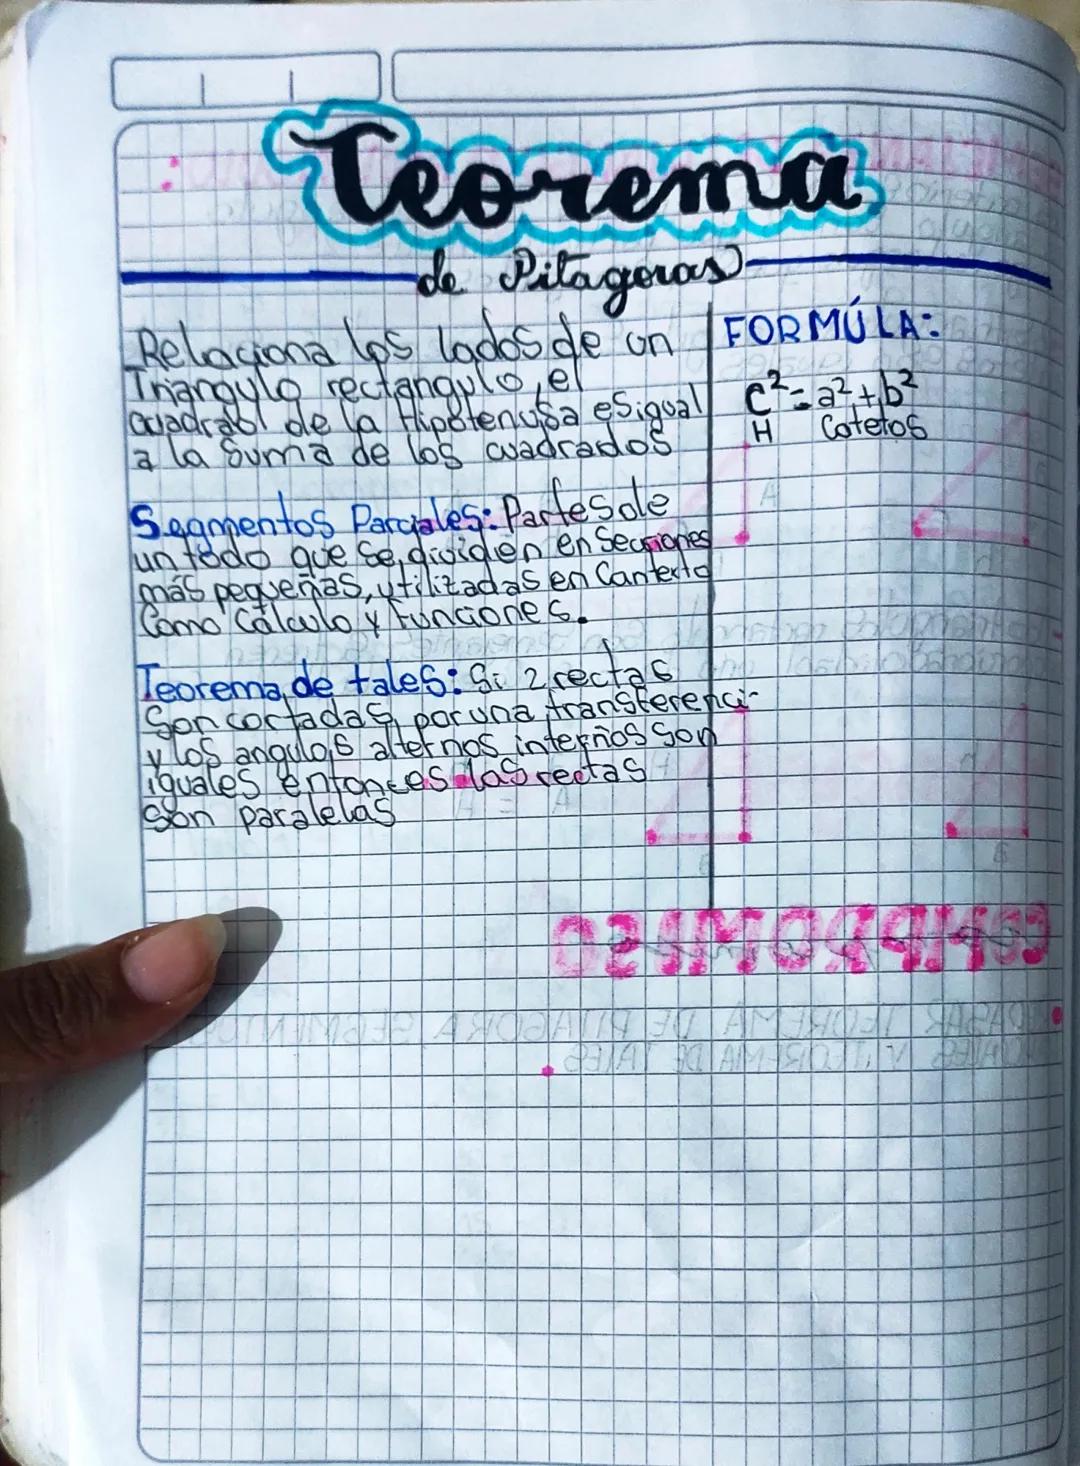 Teorema
de Pitagoras
Relaciona los lados de un
Triangulo rectangulo, el
cuadrad de la Hipotenusa es igual
a la suma de los cuadrados
Segmentos Parciales: Partes de
un todo que se dividen en secciones
más pequeñas, utilizadas en Contexto
Como Cálculo y Funciones.
Teorema de tales: Si 2 rectas
Son cortadas por una transferenci-
y los angulos alternos internos son
iguales entonces las rectas
son paralelas
FORMÚLA:
c²=a²+b²
H Catetos